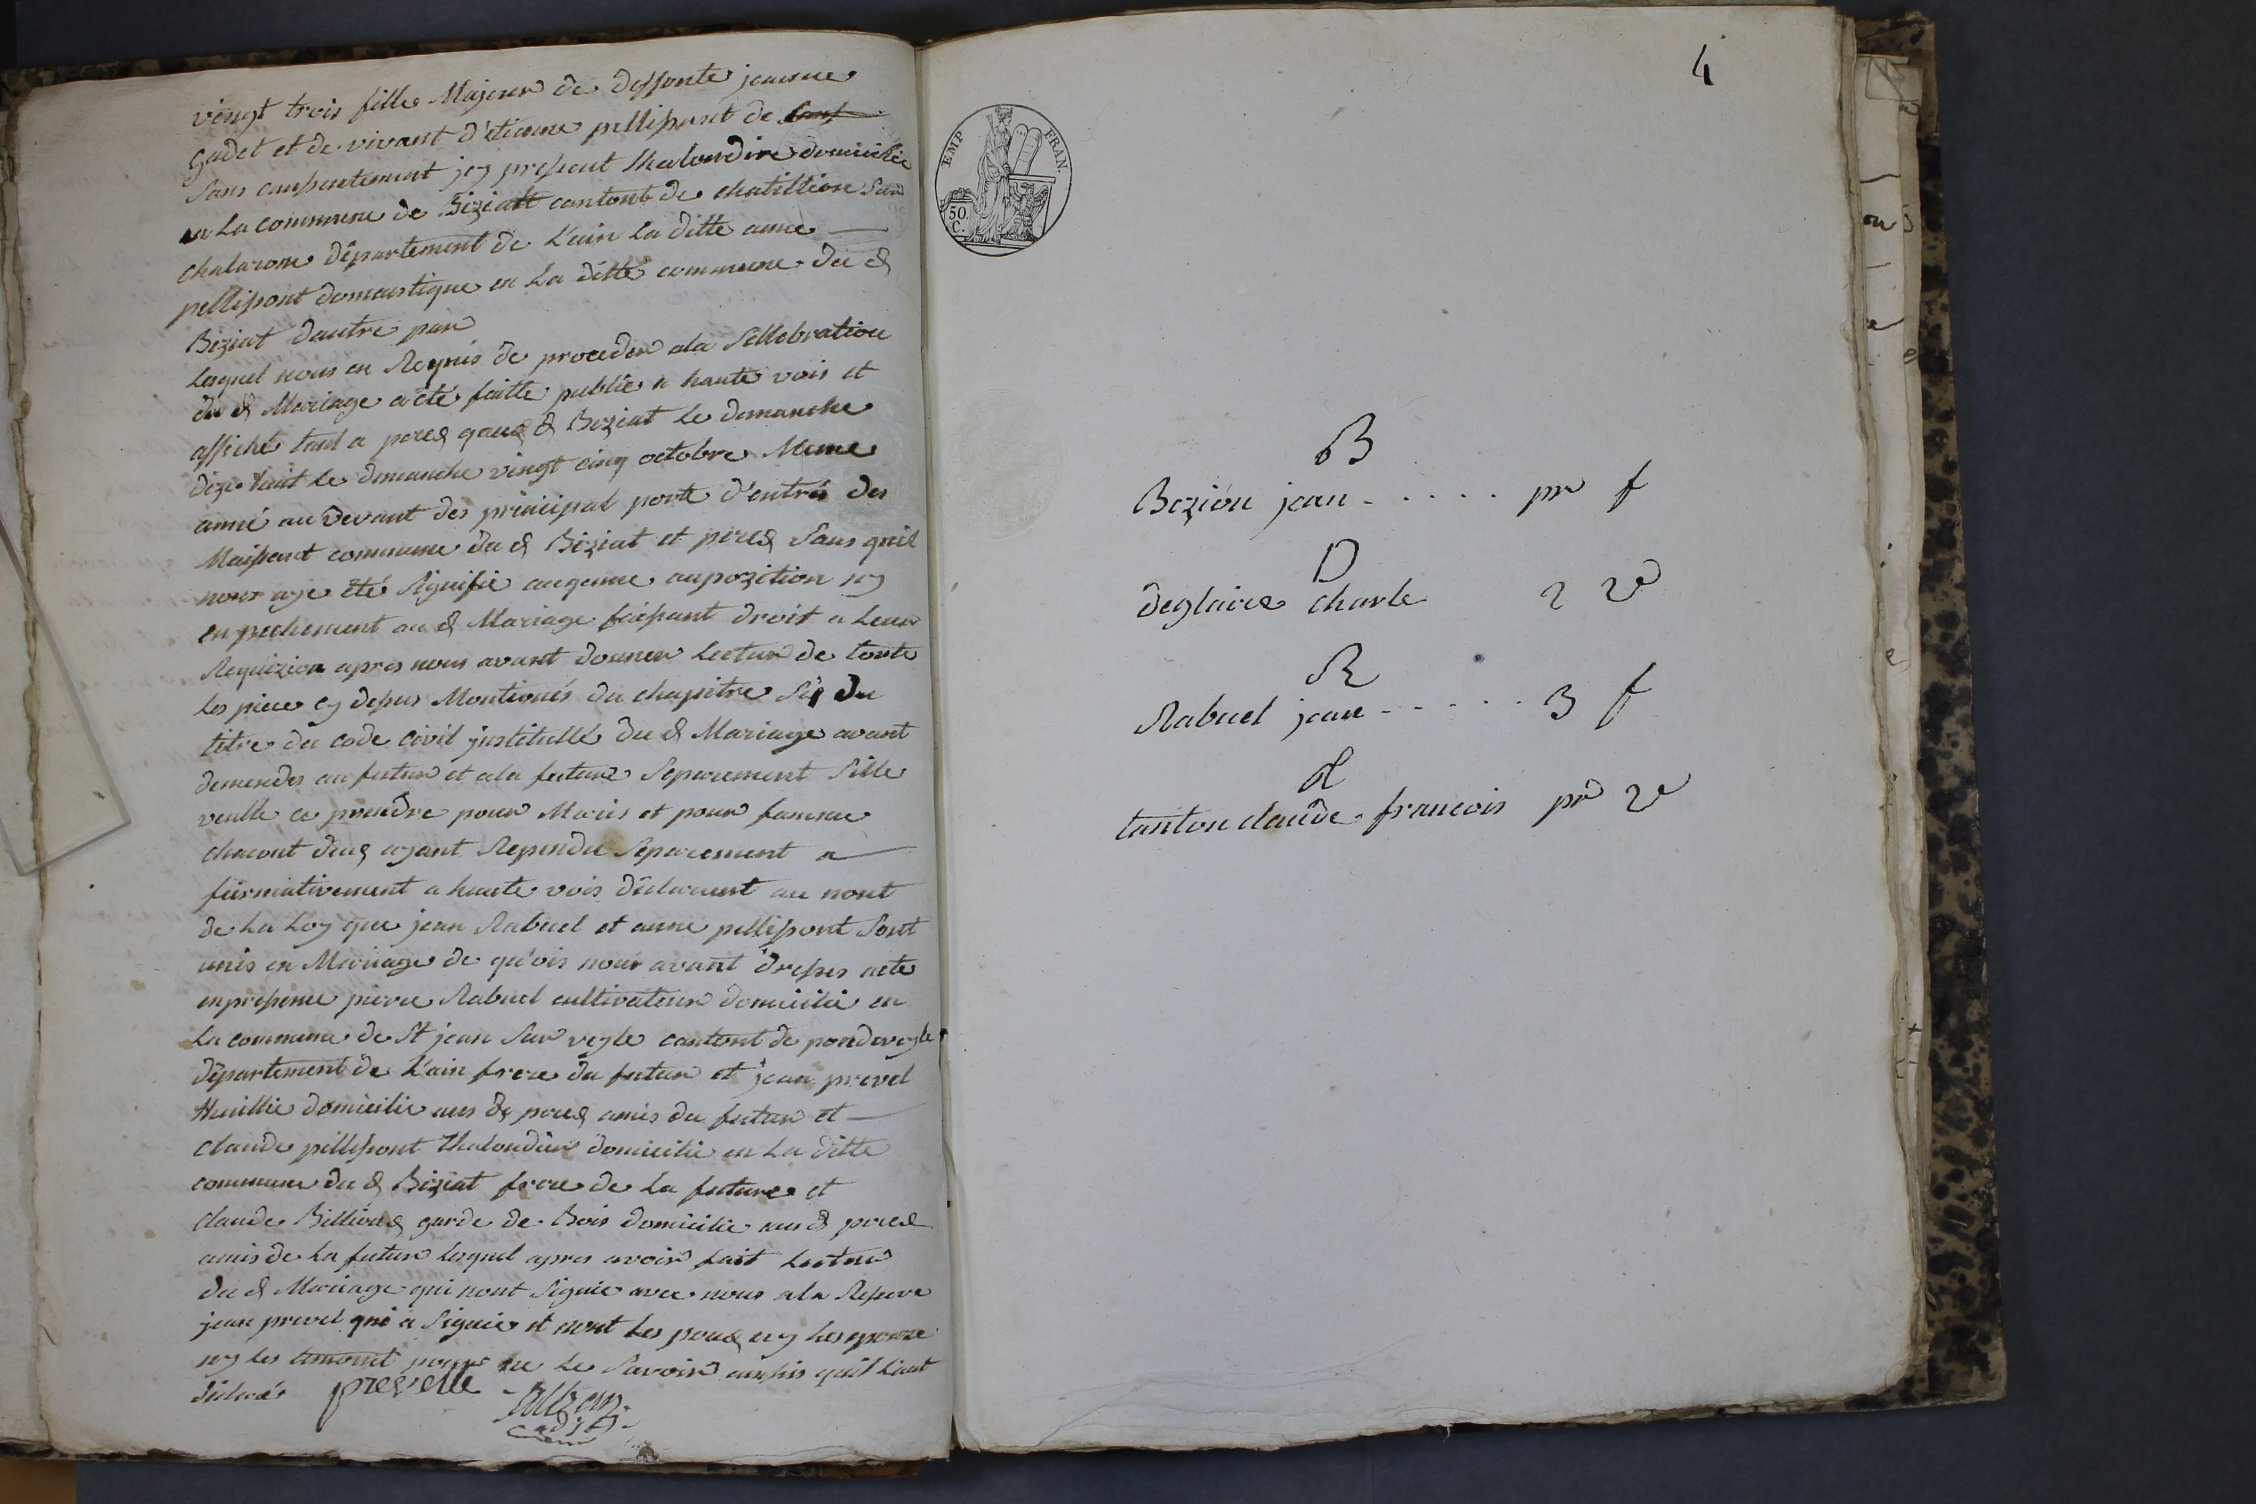 vingt trois fille Majeur de deffonte jeanne
gadet et de vivant d'etienne pellissont de
sans consentement jcy present thalondire domicilie
en La commune de Biziatt cantont de chatillion Sur
chalarone département de L'ain La ditte anne
pellissont domaistique en La ditte commune du d
Biziat dautre par
Lesquel nous en Requis de proceder ala Sellebration
du d Mariage a été faitte public a haute vois et
affiche tout a perex d Biziat le dimanche
dize huit le dimanche vingt cinq octobre Meme
anné au devant des principal porte d'entrés des
Maissont commune du d Biziat et perex Sans quil
nous aye été Signifie auqune aupozition ny
enpechement au d Mariage faissant droit a Leur
Requizion apres nous avant donner Lectur de toute
les piece cy dessus Montionés du chapitre Six du
titre du code civil justitullé du d Mariage avant
demendes au futur et ala future Séparement Sille
veulle ce prendre pour Maris et pour famme
chacont deux ayant Repondu Séparement a
firmativement a haute vois déclarent au nont
de La Loy que jean Rabuel et anne pellissont Sont
unis en Mariage de qu'ois nous avant dresses acte
enpresence pierre Rabuel cultivateur domicilié en
La commune de St jean Sur veyle cantont de pondeveyle
département de L'ain frere du futur et jean prevel
thuillie domicilie aus d perex amis du futur et
claude pillissont thalondier domicilie en La ditte
commune du d Biziat frere de La future et
claude Billioux garde de Bois domicilie aus d perex
amis de La futur Lesquel apres avoir fait Lectur
du d Mariage qui nont Signie avec nous ala Reserve
jean prevel qui a Signie et nont Les poux ny Les epouze
ny les temont pour ne Le Savoir aussis quil L'ont
déclaré prevelle
adjt
4
EMP FRAN.
50 C.
B
Bozion jean - . . . . pr f
D
deglaire charle 2 vo
R
Rabuel jean - . . . . 3 f
T
tanton claude francois pr vo